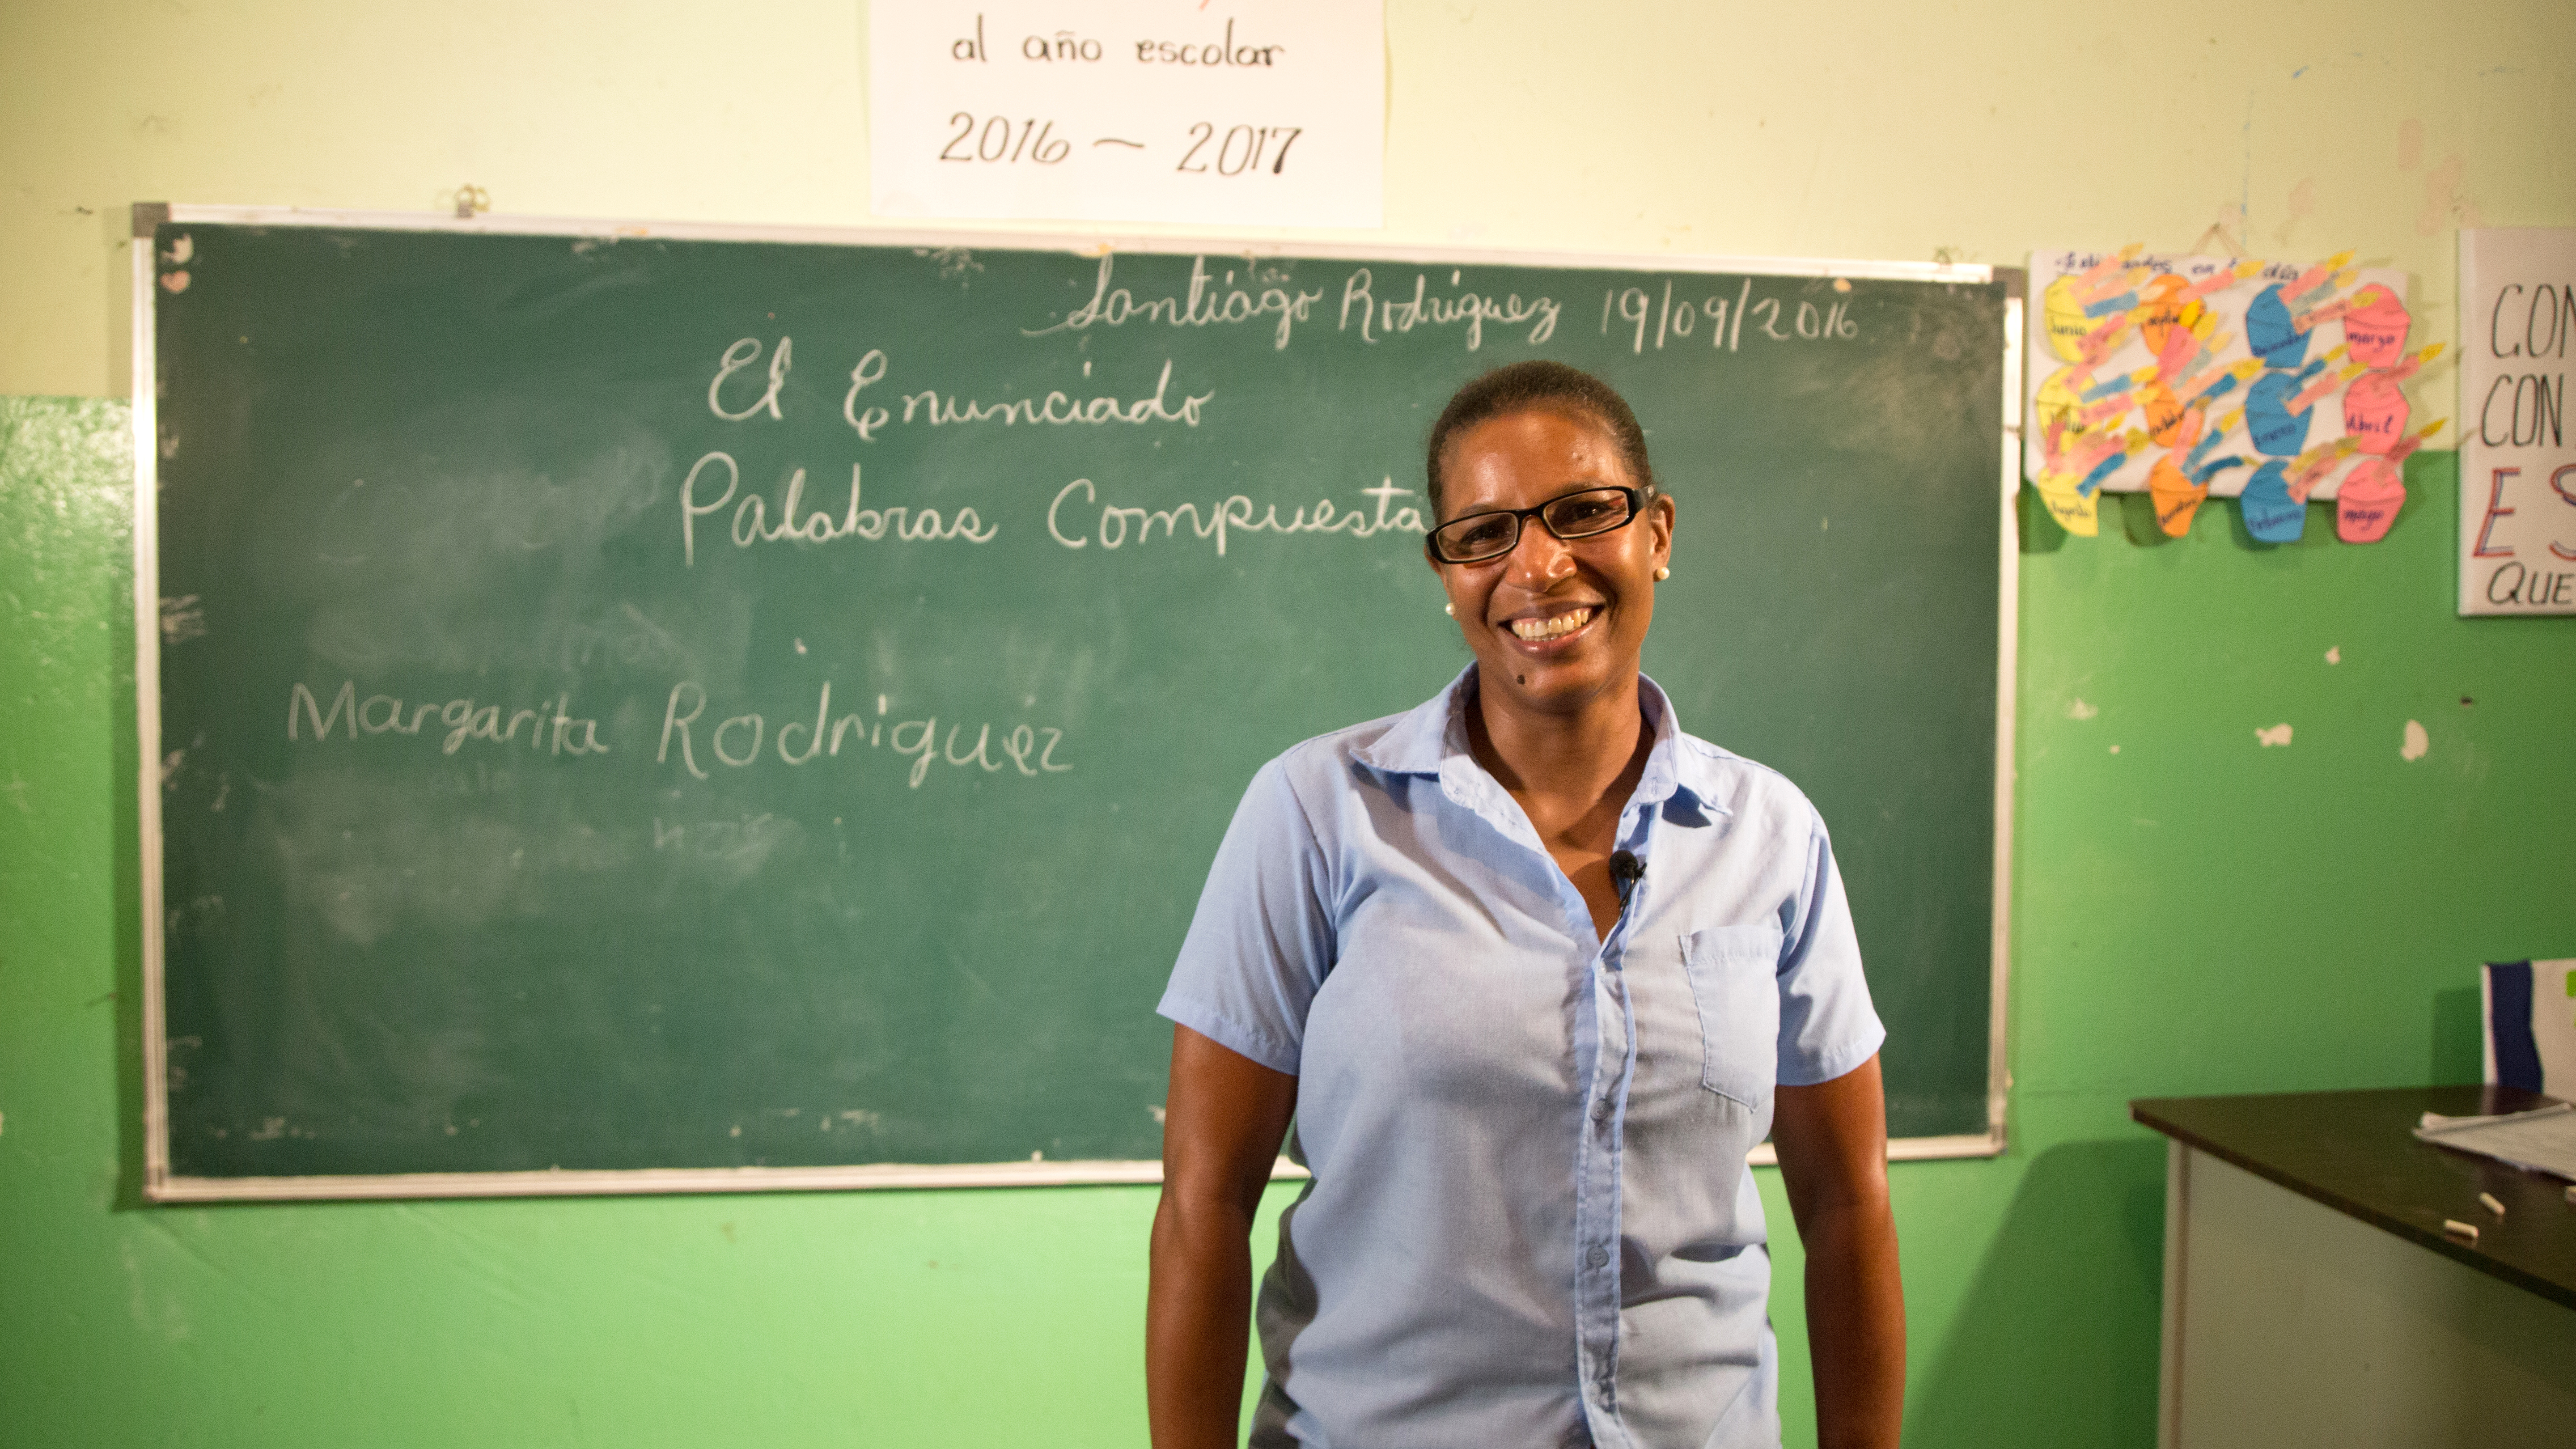 al año escolar
2016 ~ 2017
Santiago Rodriguez 19/09/2016
El Enunciado
Palabras Compuesta
Margarita Rodriguez
Junio
marzo
Abril
Enero
Agosto
Febrero
mayo
CON
CON
ES
QUE